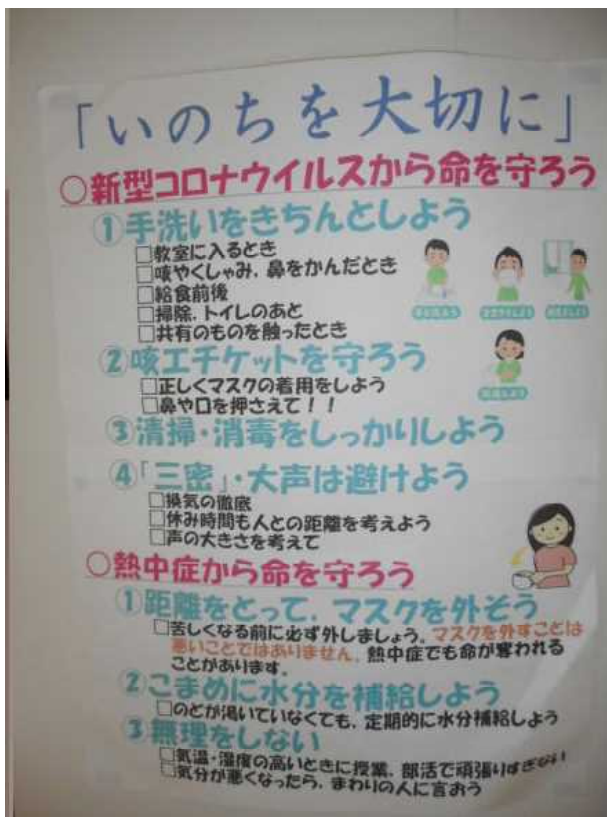 「いのちを大切に」
○新型コロナウイルスから命を守ろう
①手洗いをきちんとしよう
□教室に入るとき
□咳やくしゃみ、鼻をかんだとき
□給食前後
□掃除、トイレのあと
□共有のものを触ったとき
②咳エチケットを守ろう
□正しくマスクの着用をしよう
□鼻や口を押さえて！！
③清掃・消毒をしっかりしよう
④「三密」・大声は避けよう
□換気の徹底
□休み時間も人との距離を考えよう
□声の大きさを考えて
○熱中症から命を守ろう
①距離をとって、マスクを外そう
□苦しくなる前に必ず外しましょう。マスクを外すことは
悪いことではありません。熱中症でも命が奪われる
ことがあります。
②こまめに水分を補給しよう
□のどが渇いていなくても、定期的に水分補給しよう
③無理をしない
□気温・湿度の高いときに授業、部活で頑張りすぎない
□気分が悪くなったら、まわりの人に言おう